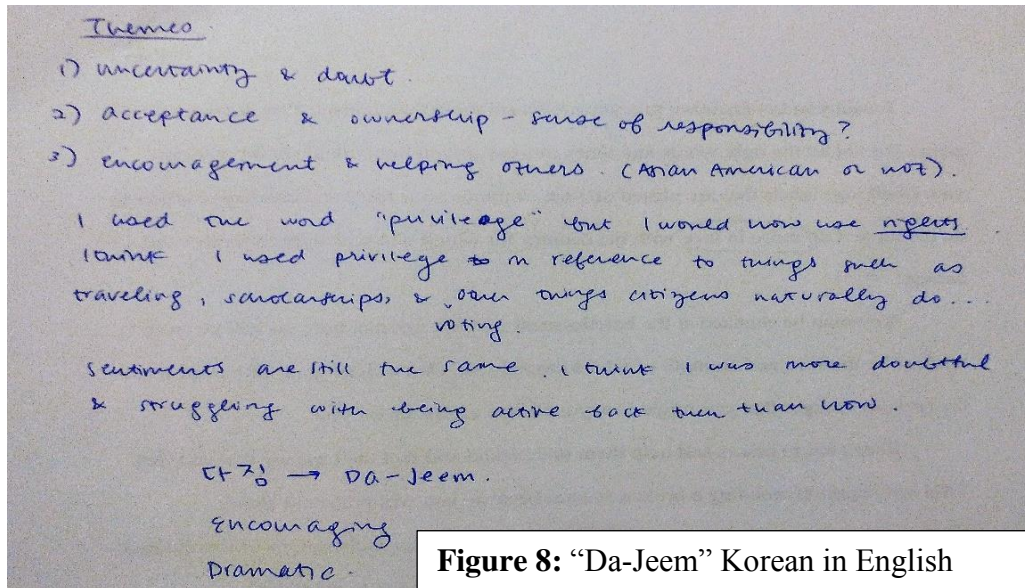 Themes
1) uncertainty & doubt.
2) acceptance & ownership - sense of responsibility?
3) encouragement & helping others. (Asian American or not).
I used the word "privilege" but I would now use rights
I think I used privilege in reference to things such as
traveling, scholarships, & other things citizens naturally do...
voting.
sentiments are still the same. I think I was more doubtful
& struggling with being active back then than now.
다짐 → Da-Jeem.
Encouraging
Dramatic.
Figure 8: “Da-Jeem” Korean in English